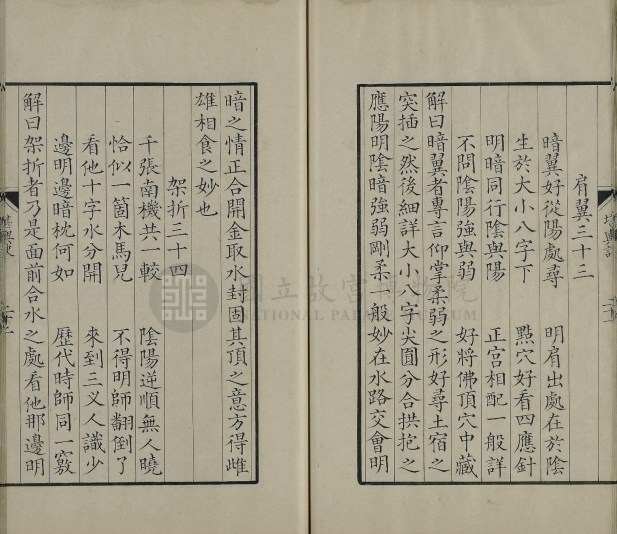 肩翼三十三
暗翼好從陽處尋 明肩出處在於陰
生於大小八字下 㸃穴好看四應針
明暗同行陰與陽 正宫相配一般詳
不問陰陽強與弱 好將佛頂穴中藏
解曰暗翼者專言仰掌柔弱之形好尋土宿之
突插之然後細詳大小八字尖圓分合拱抱之
應陽明陰暗強弱剛柔一般妙在水路交會明
暗之情正合開金取水封固其頂之意方得雌
雄相食之妙也
架折三十四
千張南機共一較 陰陽逆順無人曉
恰似一箇木馬兒 不得明師翻倒了
看他十字水分開 來到三义人識少
邊明邊暗枕何如 歴代時師同一竅
解曰架折者乃是面前合水之處看他那邊明
國立故宮博物院
NATIONAL PALACE MUSEUM